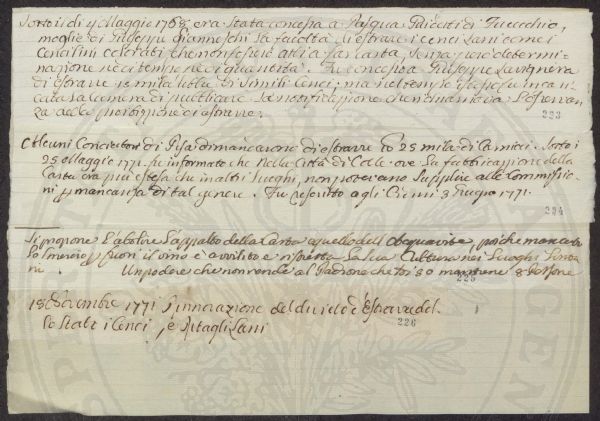 Sotto i di 4 Maggio 1768 era stata concessa a Pasqua di Fucecchio
moglie di Giuseppe Gianneschi la facoltà di estrarre i cenci Lani come i
Cencilini che non fossero atti a far Carta, senza però determi-
nazione ne di tempo ne di quantità. Fu concesso a Giuseppe
di estrarre mila libbre di simili Cenci, ma nel tempo fu inca-
ricata la Camera di pubblicare la notificazione che l'osservan-
za della proibizione di estrarre.
223
Alcuni Conciatori di Pisa dimandarono di estrarre 25 mila di Sotto i
25 Maggio 1771 fu informato che nella Città di Colle ove la fabbricazione della
Carta era più estesa che in altri luoghi, non potevano supplire alle Commissio-
ni p mancanza di tal genere. Fu rescritto agli 3 Giugno 1771.
224
Si propone l'abolire l'appalto della Carta e quello dell'Acquavite, poiché mancato
lo smercio fuori il vino è avvilito e la sua Cultura nei luoghi
ni. Un podere che non rende al Padrone che 80 mantiene 8 Persone
225
18 Decembre 1771 Rinnovazione del divieto d'Estrarre del-
lo Stato i Cenci, e Ritagli Lani
226